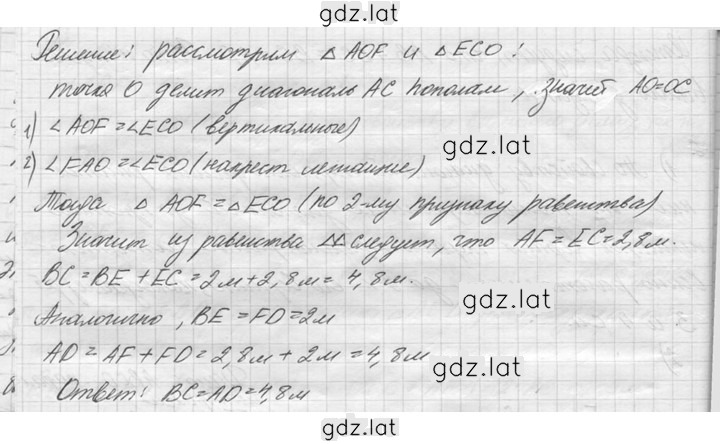 gdz.lat
Решение: рассмотрим △ AOF и △ECO:
точка O делит диагональ AC пополам, значит AO=OC
gdz.lat
1) ∠AOF=∠ECO (вертикальные)
gdz.lat
2) ∠FAO=∠ECO (накрест лежащие)
Тогда △ AOF=△ECO (по 2-му признаку равенства)
Значит из равенства △△ следует, что AF=EC=2,8м.
BC=BE+EC=2м+2,8м=4,8м.
gdz.lat
Аналогично, BE=FD=2м
AD=AF+FD=2,8м+2м=4,8м
gdz.lat
Ответ: BC=AD=4,8м
gdz.lat